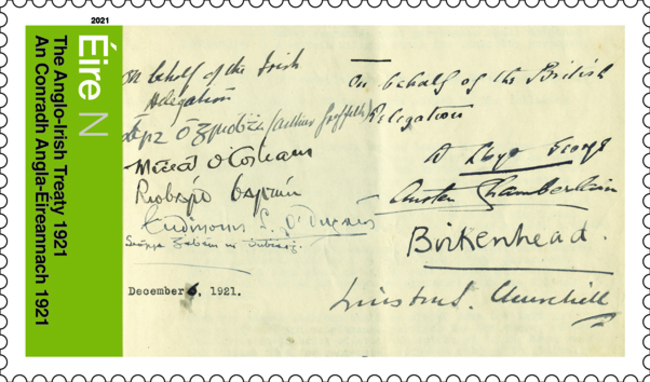 2021
Éire N
The Anglo-Irish Treaty 1921
An Conradh Angla-Éireannach 1921
On behalf of the Irish
Delegation
Art Ó Gríobhtha (Arthur Griffith)
Mícheál Ó Coileáin
Riobárd Bartún
S. Ó Dugáin
December 6, 1921.
On behalf of the British
Delegation
D Lloyd George
Austen Chamberlain
Birkenhead.
Winston S. Churchill